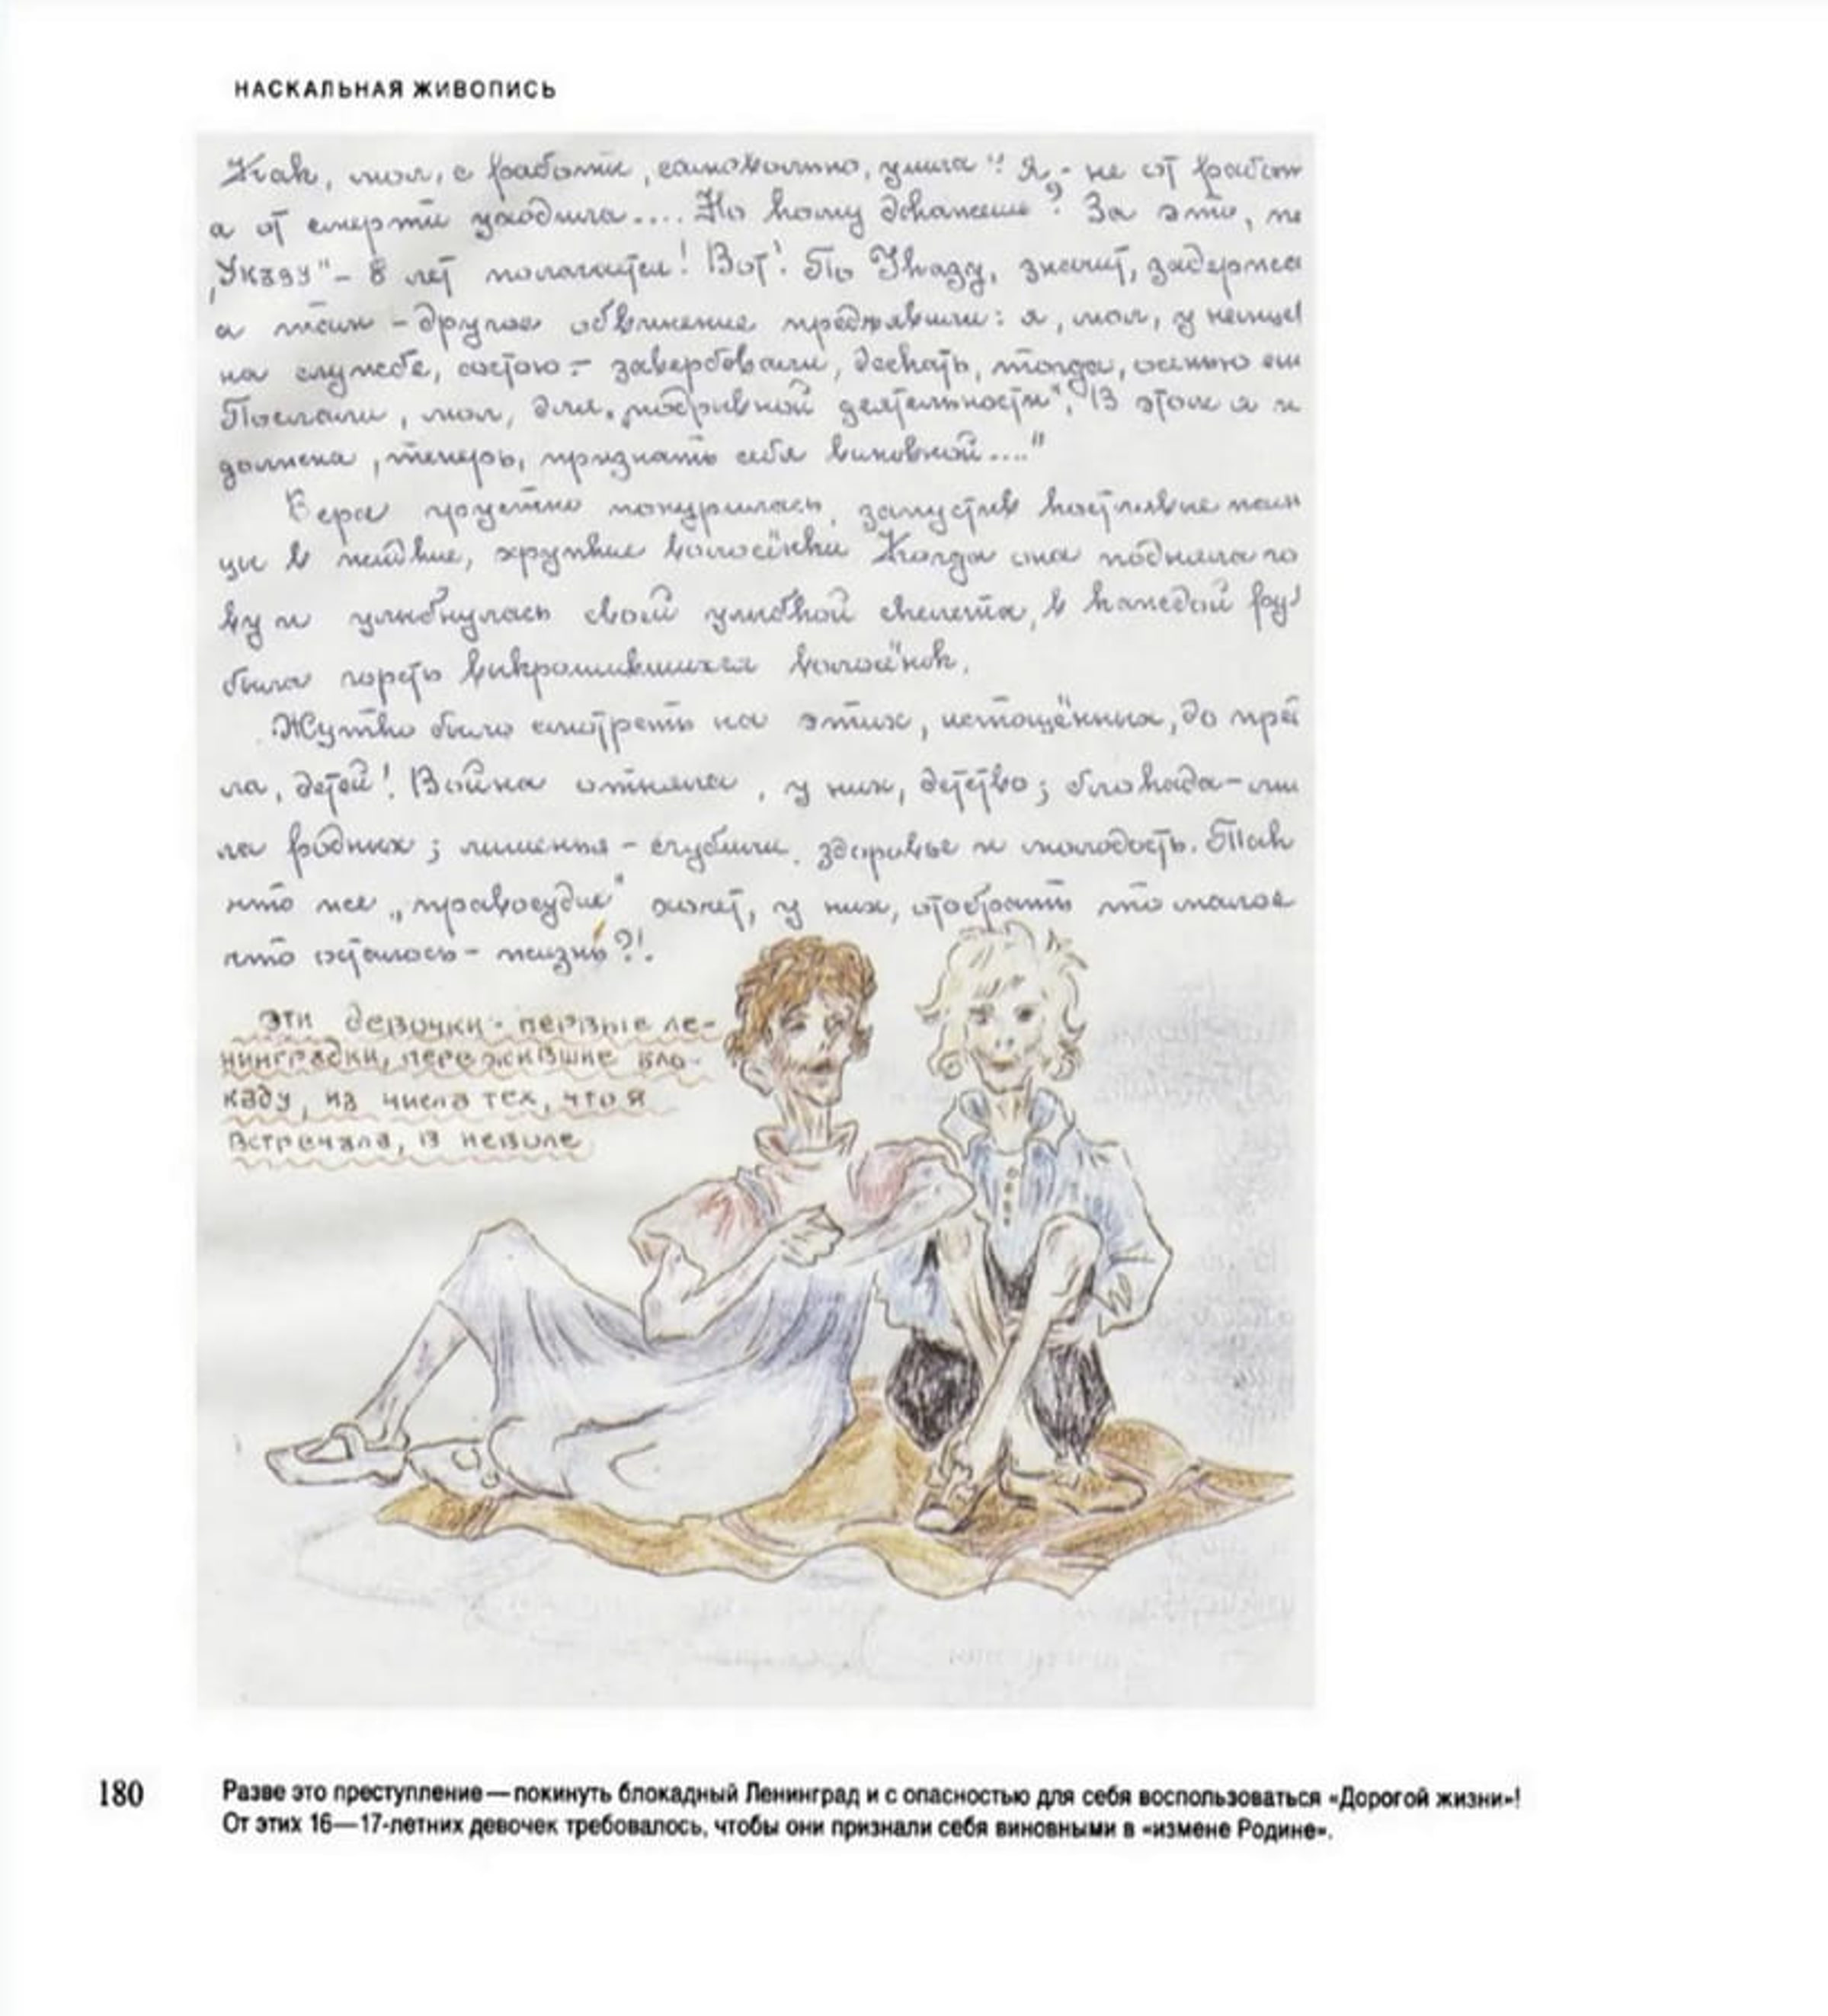 НАСКАЛЬНАЯ ЖИВОПИСЬ
Как, мол, с работы, самовольно, ушла"? Я,- не от работ
а от смерти уходила.... Но кому докажешь? За это, по
„Указу"- 8 лет полагается! Вот! По Указу, значит, задержа
а там - другое обвинение предъявили: я, мол, у немце
на службе, состою:- завербовали, дескать, тогда, осенью
Послали, мол, для „подрывной деятельности". В этом я и
должна, теперь, признать себя виновной...."
Вера грустно понурилась, запустив костлявые паль
цы в жидкие, хрупкие волосёнки. Когда она подняла го
ву и улыбнулась своей улыбкой скелета, в каждой ру
была горсть выкрошившихся волосёнок.
Жутко было смотреть на этих, истощённых, до пре
ла, детей! Война отняла, у них, детство; блокада-ли
ла родных; лишенья - сгубили здоровье и молодость. Так
что же „правосудие" хочет, у них, отобрать то малое
что осталось - жизнь?!.
Эти девочки - первые ле-
нинградки, пережившие бло-
каду, из числа тех, что я
встречала, в неволе
180
Разве это преступление—покинуть блокадный Ленинград и с опасностью для себя воспользоваться «Дорогой жизни»!
От этих 16—17-летних девочек требовалось, чтобы они признали себя виновными в «измене Родине».